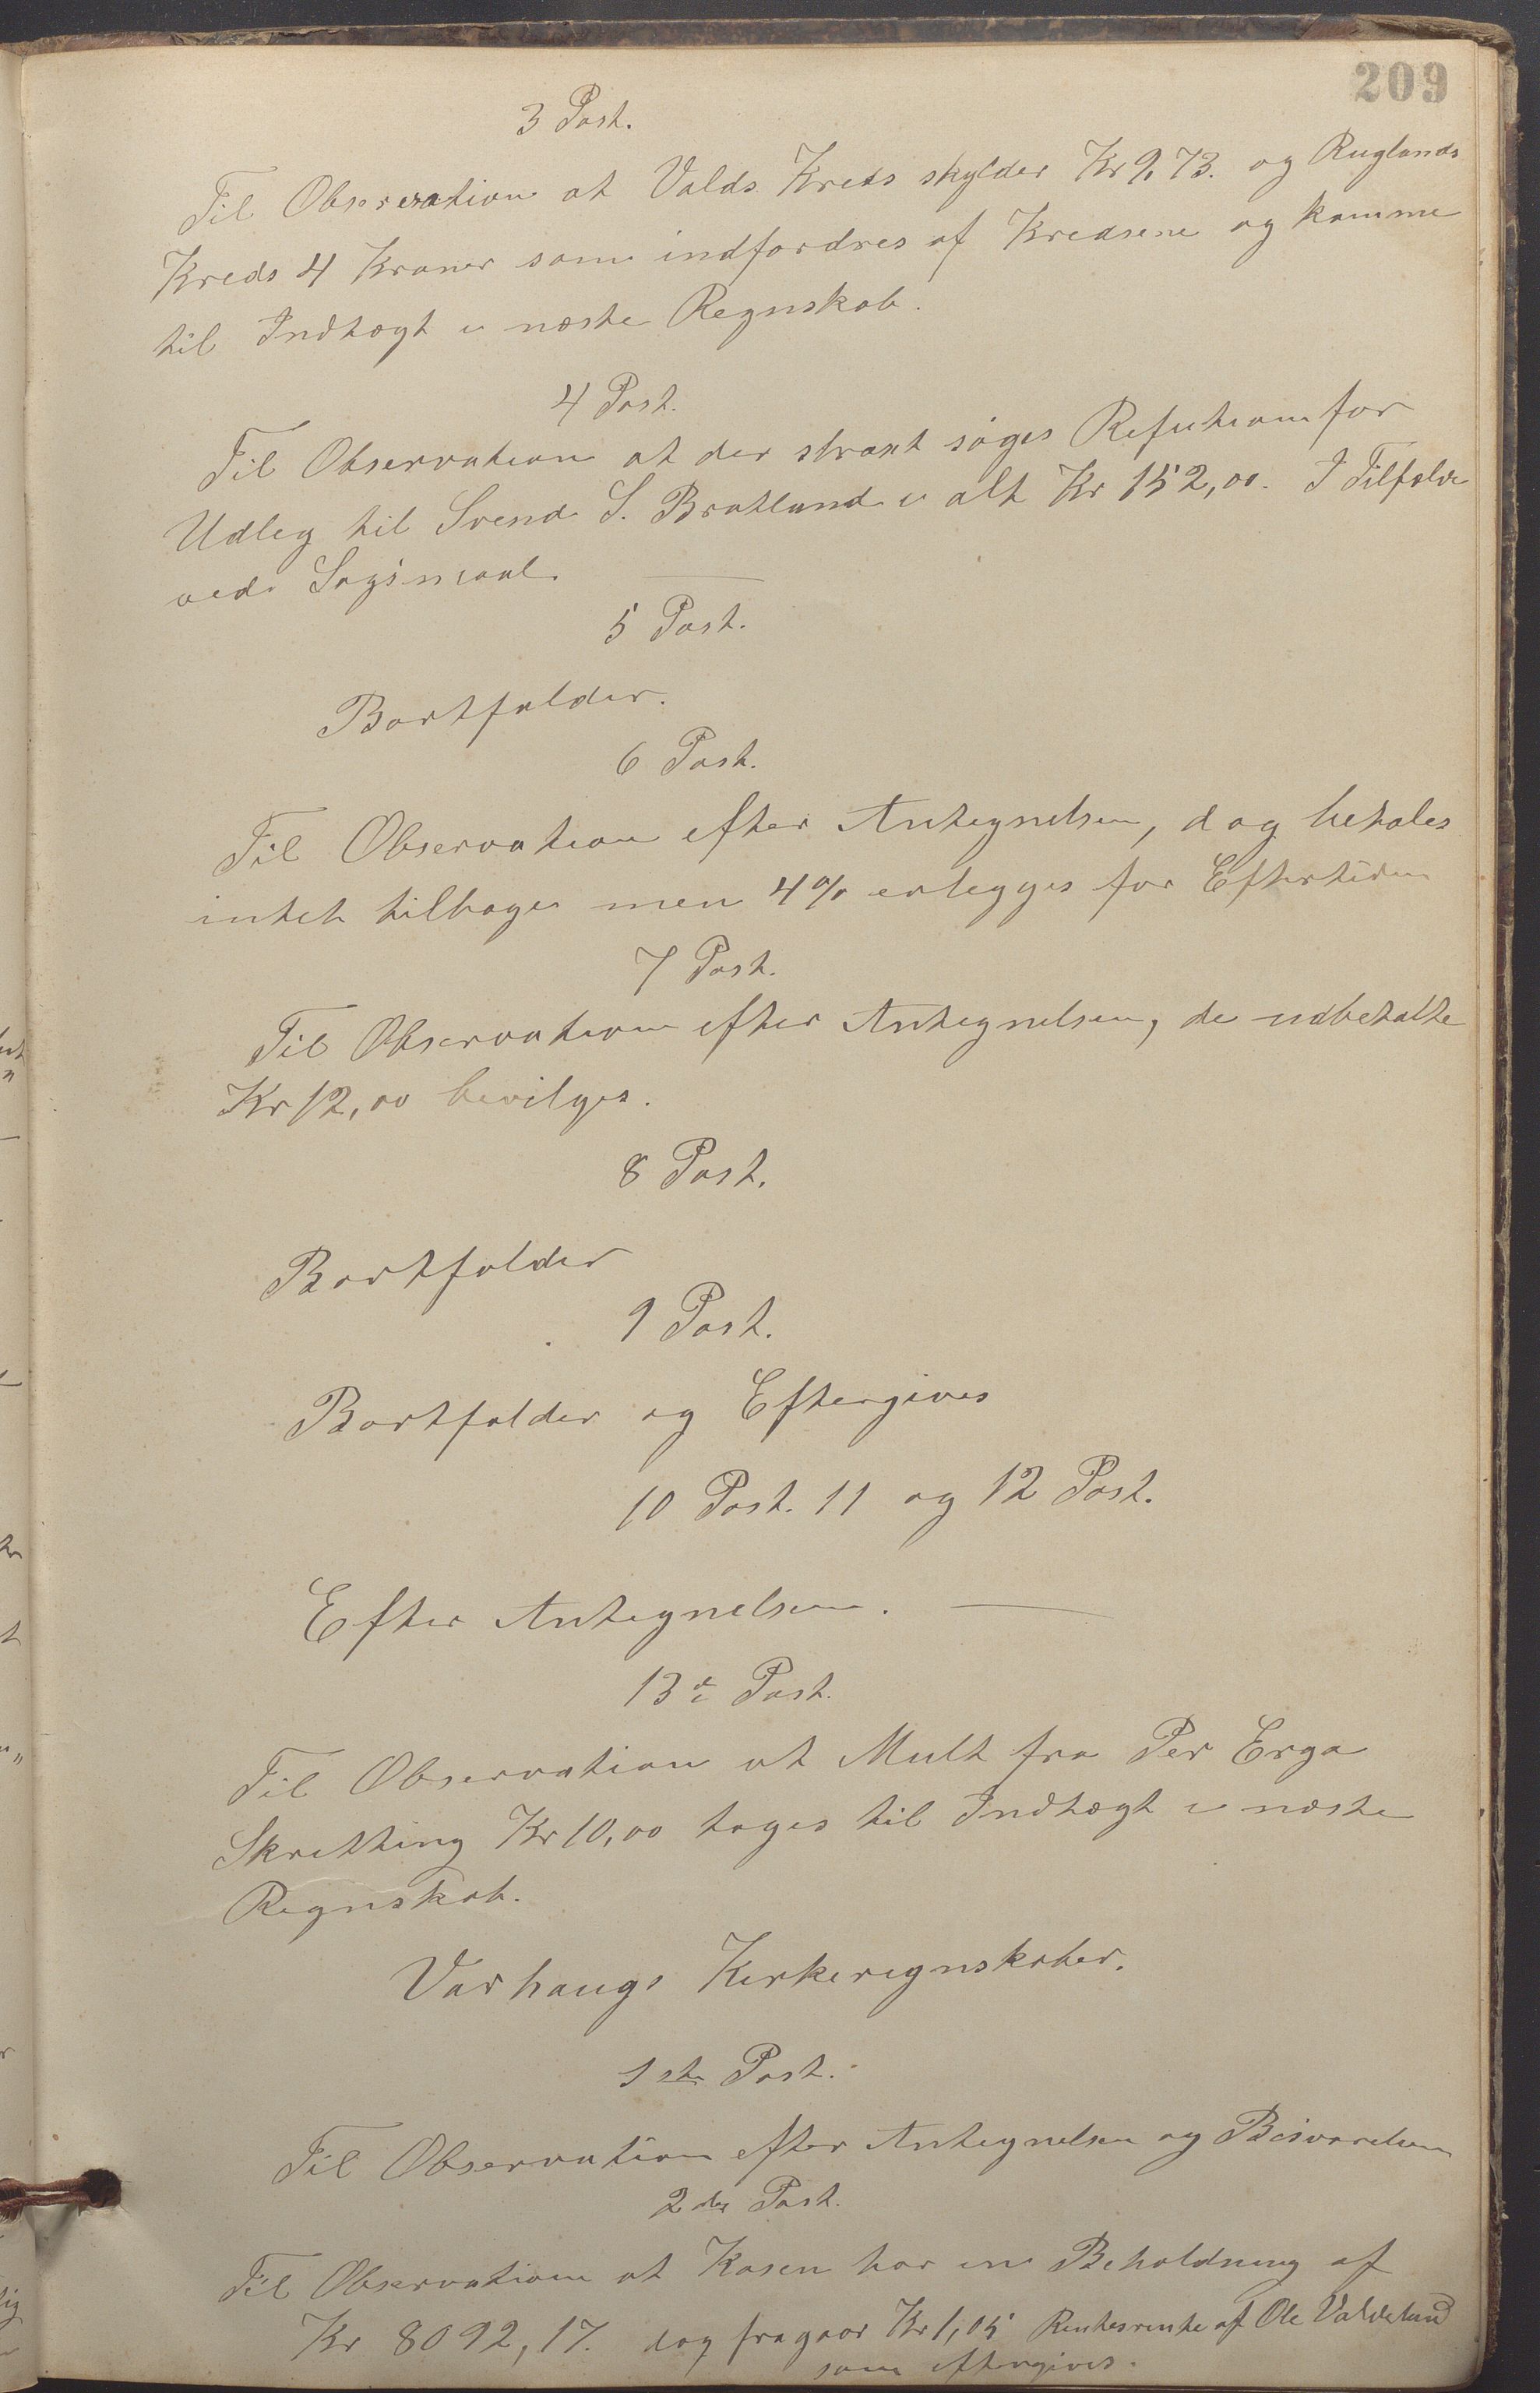 209
3 Post.
Til Observation at Valds Kreds skylder Kr 9,73. og Ruglands
Kreds 4 Kroner som indfordres af Kredsene og komme
til Indtægt i næste Regnskab.
4 Post.
Til Observation at der straxt søges Refution for
Udleg til Svend S. Bratland i alt Kr 152,00. I Tilfælde
ved Sagsmaal.
5 Post.
Bortfalder.
6 Post.
Til Observation efter Antegnelsen, dog betales
intet tilbage men 4% erlegges for Eftertiden
7 Post.
Til Observation efter Antegnelsen, de udbetalte
Kr 12,00 bevilges.
8 Post.
Bortfalder
9 Post.
Bortfalder og Eftergives
10 Post. 11 og 12 Post.
Efter Antegnelsen.
13de Post.
Til Observation at Mult fra Per Erga
Skretting Kr 10,00 tages til Indtægt i næste
Regnskab.
Varhaugs Kirkeregnskaber.
1ste Post.
Til Observation efter Antegnelsen og Besvarelsen
2den Post.
Til Observation at Kasen har en Beholdning af
Kr 8092,17. dog fragaar Kr 1,05 Rentesrente af Ole Valdeland
som eftergives.